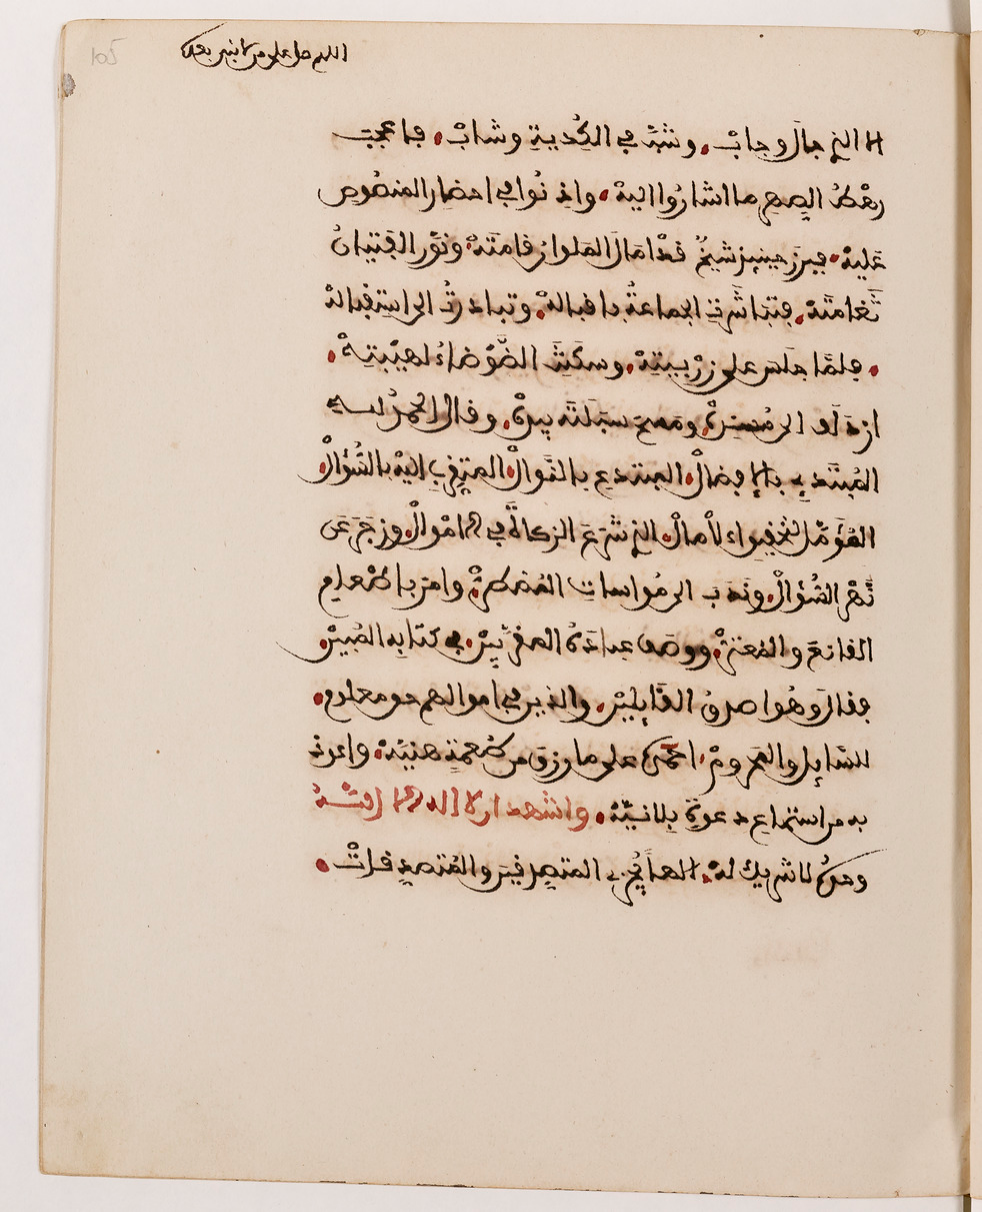 105
اللهم صل على من لا نبي بعده
الا الذي جال وجاب. وشب في الكدية وشاب. فاعجب
رهط الصهر ما اشاروا اليه. واذنوا في احضار المنصوص
عليه. فبرز حينيذ شيخ قد امال الملوان قامته. ونور الفتيان
ثغامته. فتباشرت الجماعة باقباله. وتبادرت الى استقباله
. فلما جلس على زربيته. وسكنت الضوضاء لهيبته.
ازدلف الى مسنده. ومسح سبلته بيده. وقال الحمد لله
المبتدي بالافضال. المبتدع بالنوال. المتقرب اليه بالسؤال.
المؤمل لتحقيق الامال. الذي شرع الزكاة في الاموال. وزجر عن
نهر السؤال. وندب الى مواسات المضطر. وامر باطعام
القانع والمعتر. ووصف عباده المقربين. في كتابه المبين.
فقال وهو اصدق القايلين. والذين في اموالهم حق معلوم.
للسايل والمحروم. احمده على ما رزق من طعمة هنية. واعوذ
به من استماع دعوة بلا نية. واشهد ان لا اله الا الله
وحده لا شريك له. الها يجزي المتصدقين والمتصدقات.